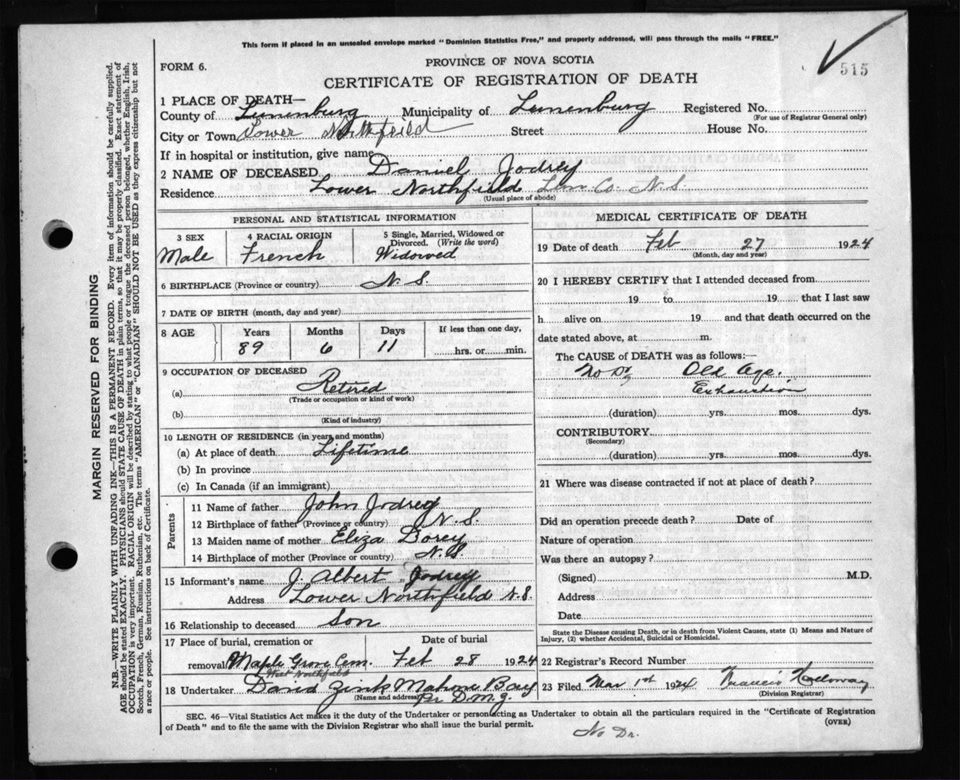 This form if placed in an unsealed envelope marked "Dominion Statistics Free," and properly addressed, will pass through the mails "FREE."
515
FORM 6.
PROVINCE OF NOVA SCOTIA
CERTIFICATE OF REGISTRATION OF DEATH
1 PLACE OF DEATH—
County of Lunenburg Municipality of Lunenburg Registered No.
(For use of Registrar General only)
City or Town Lower Northfield Street House No.
If in hospital or institution, give name
2 NAME OF DECEASED Daniel Jodrey
Residence Lower Northfield Lun Co. N.S.
(Usual place of abode)
PERSONAL AND STATISTICAL INFORMATION
3 SEX
Male
4 RACIAL ORIGIN
French
5 Single, Married, Widowed or
Divorced. (Write the word)
Widowed
6 BIRTHPLACE (Province or country) N.S.
7 DATE OF BIRTH (month, day and year)
8 AGE Years Months Days If less than one day,
89 6 11 hrs. or min.
9 OCCUPATION OF DECEASED
(a) Retired
(Trade or occupation or kind of work)
(b)
(Kind of industry)
10 LENGTH OF RESIDENCE (in years and months)
(a) At place of death Lifetime
(b) In province
(c) In Canada (if an immigrant)
Parents
11 Name of father John Jodrey
12 Birthplace of father (Province or country) N.S.
13 Maiden name of mother Eliza
14 Birthplace of mother (Province or country) N.S.
15 Informant's name J. Albert Jodrey
Address Lower Northfield N.S.
16 Relationship to deceased Son
17 Place of burial, cremation or Date of burial
removal Maple Grove Cem. Feb 28 1924
West Northfield
18 Undertaker David Zink Mahone Bay
(Name and address) Per D.M.Z.
MEDICAL CERTIFICATE OF DEATH
19 Date of death Feb 27 1924
(Month, day and year)
20 I HEREBY CERTIFY that I attended deceased from
19 to 19 that I last saw
h alive on 19 and that death occurred on the
date stated above, at m.
The CAUSE of DEATH was as follows:—
No Dr. Old Age.
Exhaustion
(duration) yrs. mos. dys.
CONTRIBUTORY
(Secondary)
(duration) yrs. mos. dys.
21 Where was disease contracted if not at place of death?
Did an operation precede death? Date of
Nature of operation
Was there an autopsy?
(Signed) M.D.
Address
Date
State the Disease causing Death, or in death from Violent Causes, state (1) Means and Nature of
Injury, (2) whether Accidental, Suicidal or Homicidal.
22 Registrar's Record Number
23 Filed Mar 1st 1924 Francis Holloway
(Division Registrar)
SEC. 46—Vital Statistics Act makes it the duty of the Undertaker or person acting as Undertaker to obtain all the particulars required in the "Certificate of Registration
of Death" and to file the same with the Division Registrar who shall issue the burial permit. (OVER)
No Dr.
MARGIN RESERVED FOR BINDING
N.B.—WRITE PLAINLY WITH UNFADING INK—THIS IS A PERMANENT RECORD. Every item of information should be carefully supplied.
AGE should be stated EXACTLY. PHYSICIANS should STATE CAUSE OF DEATH in plain terms, so that it may be properly classified. Exact statement of
OCCUPATION is very important. RACIAL ORIGIN will be described by stating to what people or tongue the deceased person belonged, whether English, Irish,
Scotch, French, German, Russian, Ruthenian, etc. The terms "AMERICAN" or "CANADIAN" SHOULD NOT BE USED as they express citizenship but not
a race or people. See instructions on back of Certificate.